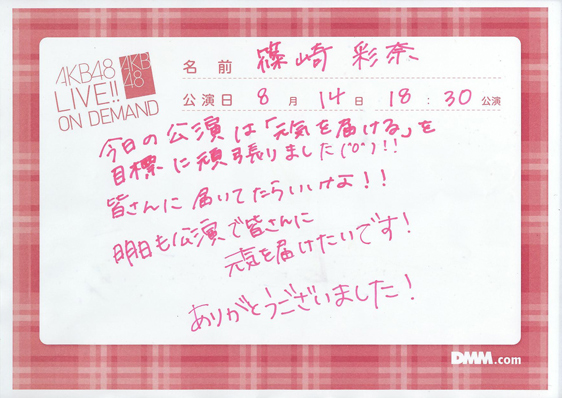 AKB48
LIVE!!
ON DEMAND
AKB
48
名前 篠崎 彩奈
公演日 8月14日 18:30公演
今日の公演は「元気を届ける」を
目標に頑張りました(^o^)!!
皆さんに届いてたらいいけど!!
明日も公演で皆さんに
元気を届けたいです!
ありがとうございました!
DMM.com